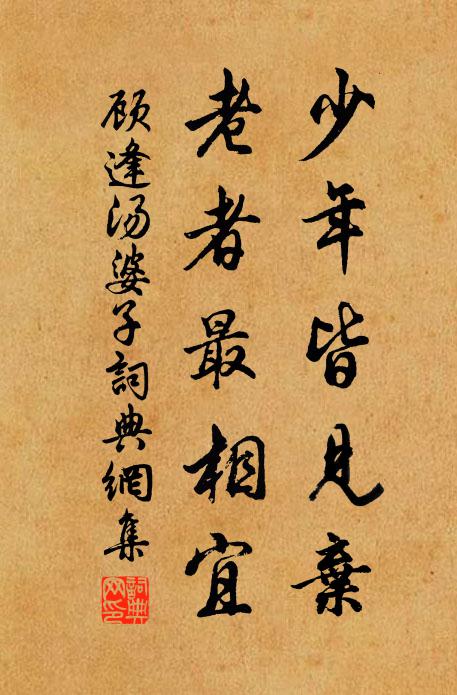 少年皆見棄
老者最相宜
顾逢汤婆子詞典網集
詞典网印